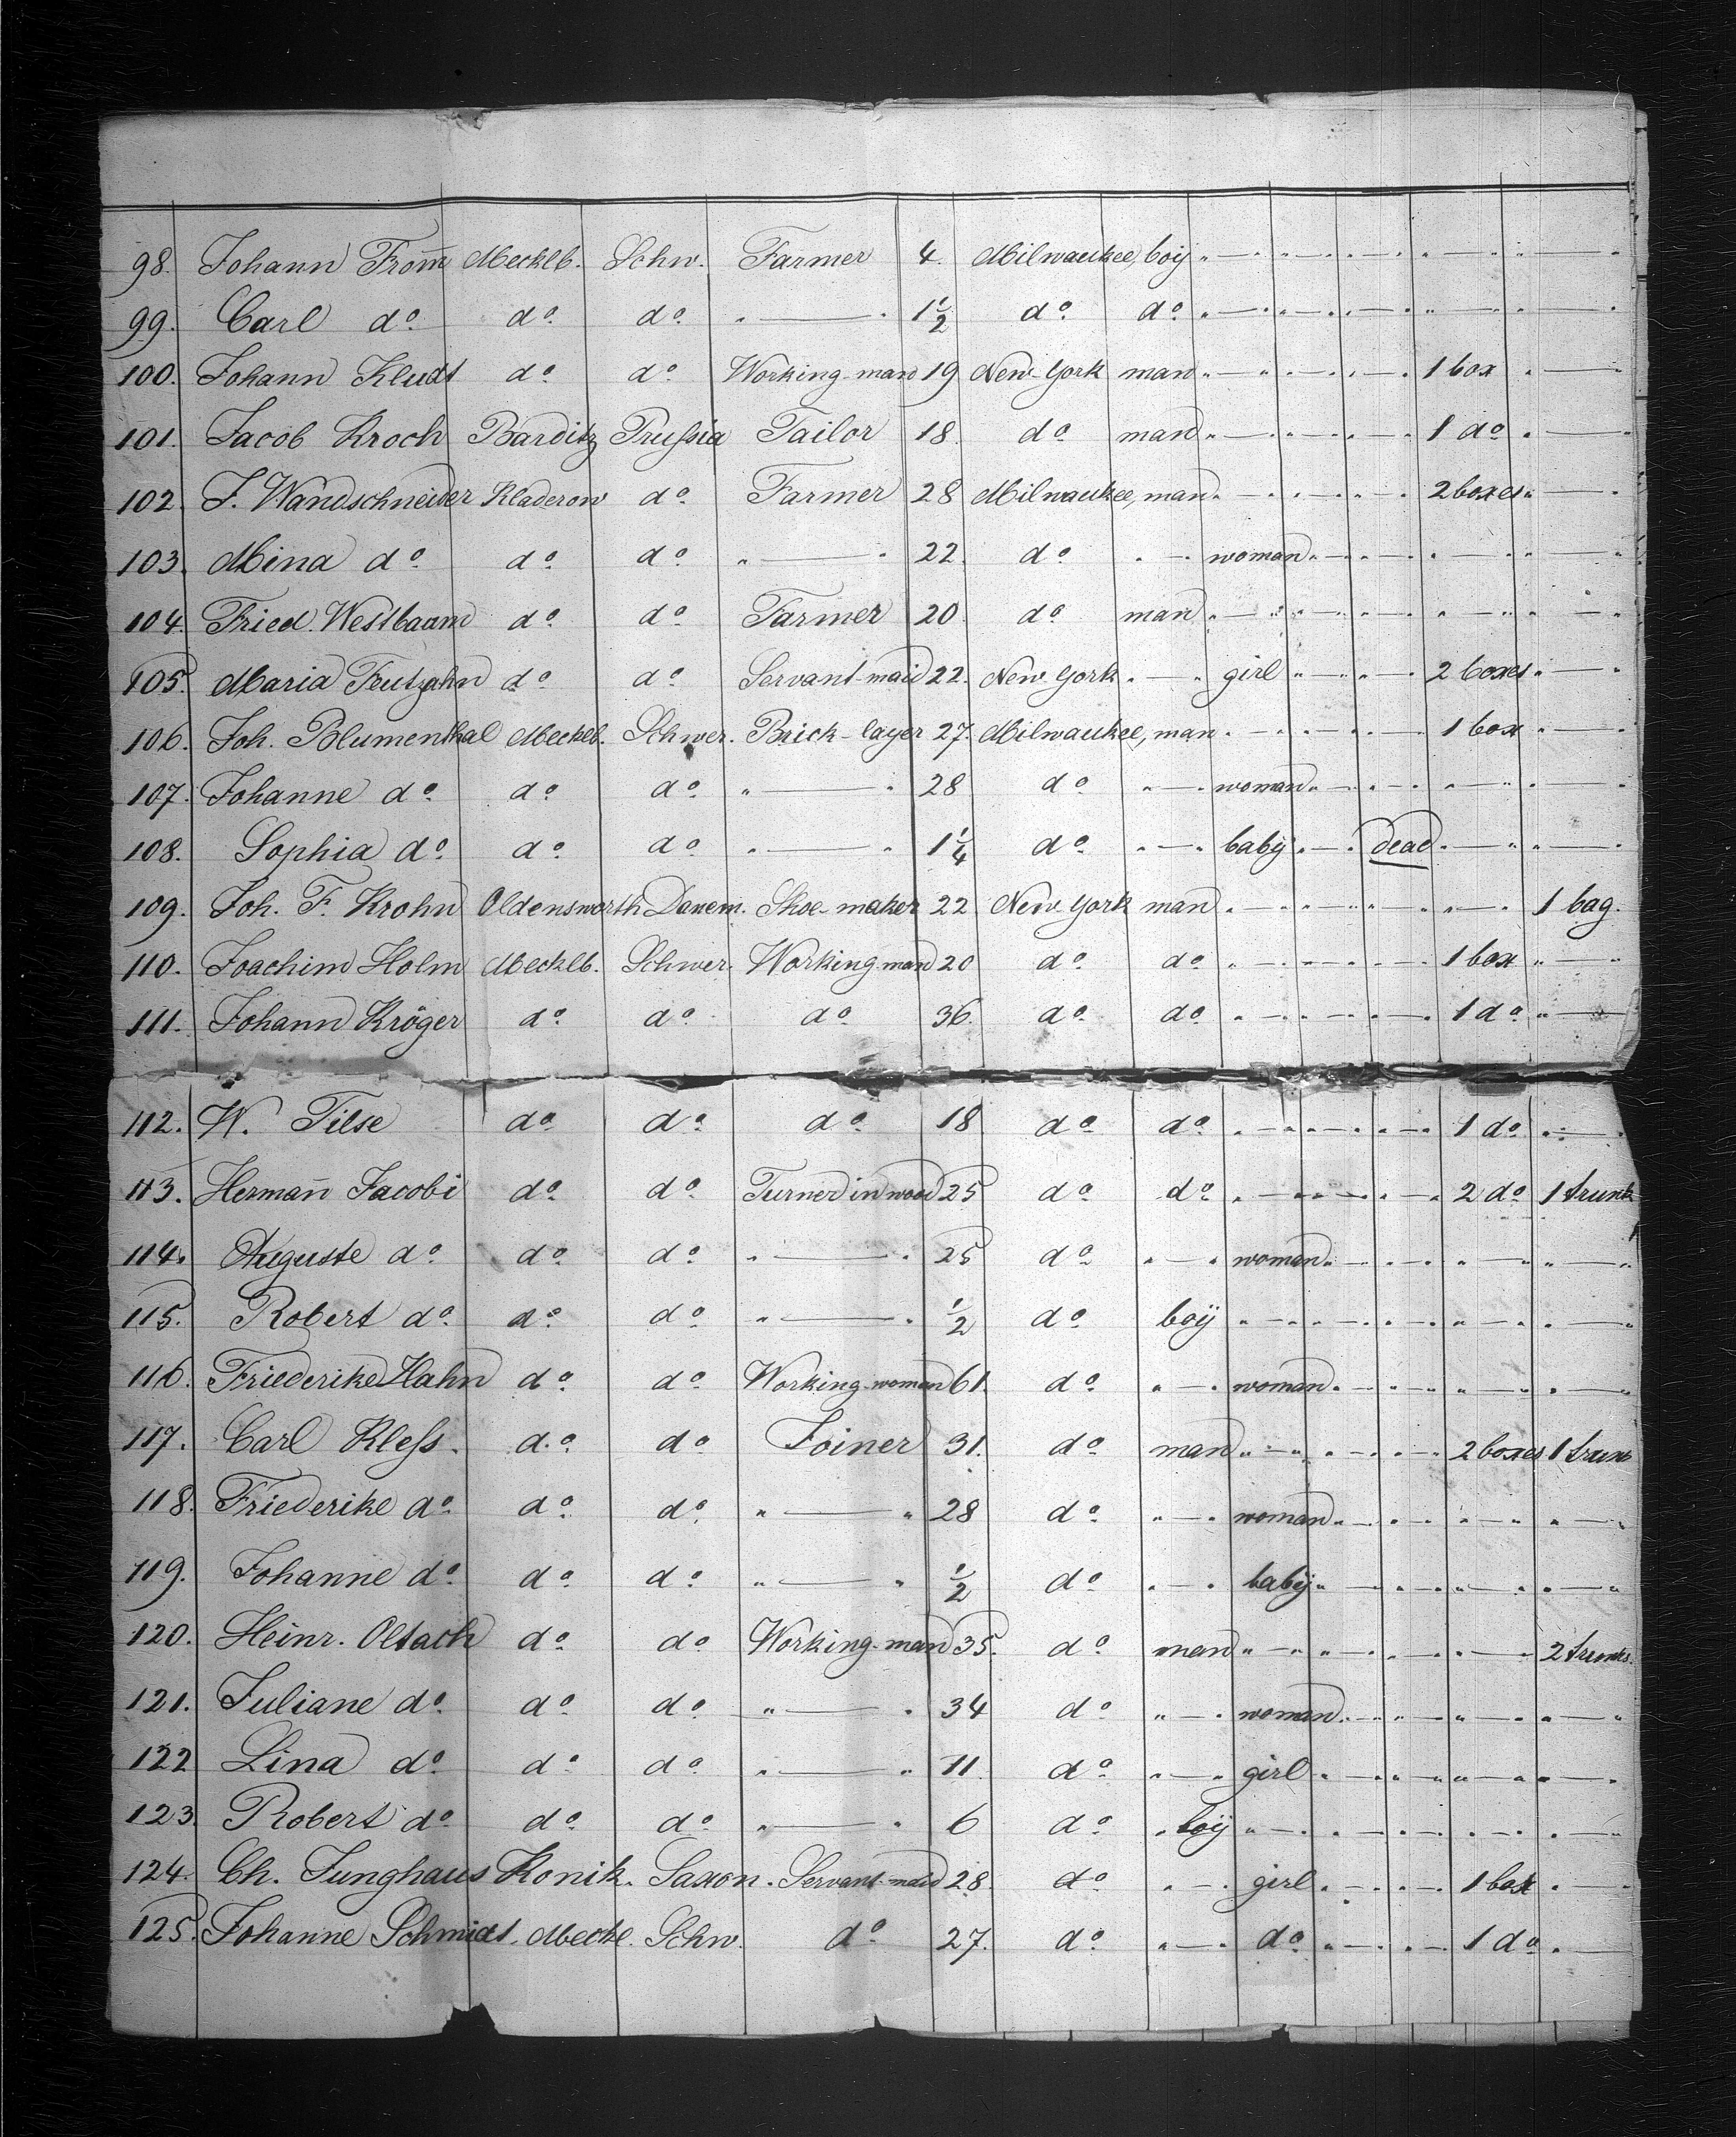 98. Johann From̅ Mecklb. Schw. Farmer 4. Milwaukee, boy " — " " — " " — " " — " " — "
99. Carl do do do " — " 1 1/2 do do " — " " — " " — " " — " " — "
100. Johann Kludt do do Working-man 19 New-York man " — " " — " " — " 1 box " — "
101. Jacob Kroch Barditz Prussia Tailor 18. do man " — " " — " " — " 1 do " — "
102. J. Wandschneider Kladerow do Farmer 28 Milwaukee, man " — " " — " " — " 2 boxes " — "
103. Mina do do do " — " 22. do " — " woman " — " " — " " — " " — "
104. Fried. Westbaum do do Farmer 20 do man " — " " — " " — " " — " " — "
105. Maria do do Servant-maid 22. New-York " — " girl " — " " — " 2 boxes " — "
106. Joh. Blumenthal Mecklb. Schwer. Brick-layer 27. Milwaukee, man " — " " — " " — " 1 box " — "
107. Johanne do do do " — " 28 do " — " woman " — " " — " " — " " — "
108. Sophia do do do " — " 1 1/4 do " — " baby " — " dead " — " " — "
109. Joh. F. Krohn Oldensworth Danem. Shoe-maker 22 New-York man " — " " — " " — " " — " 1 bag.
110. Joachim Holm Mecklb. Schwer. Working man 20 do do " — " " — " " — " 1 box " — "
111. Johann Kröger do do do 36. do do " — " " — " " — " 1 do " — "
112. W. Tilse do do do 18 do do " — " " — " " — " 1 do " — "
113. Herman̅ Jacobi do do Turner in wood 25 do do " — " " — " " — " 2 do 1 trunk
114. Auguste do do do " — " 25 do " — " woman " — " " — " " — " " — "
115. Robert do do do " — " 1/2 do boy " — " " — " " — " " — " " — "
116. Friederike Hahn do do Working-woman 61. do " — " woman " — " " — " " — " " — "
117. Carl Kless. do do Joiner 31. do man " — " " — " " — " 2 boxes 1 trunk
118. Friederike do do do " — " 28 do " — " woman " — " " — " " — " " — "
119. Johanne do do do " — " 1/2 do " — " baby " — " " — " " — " " — "
120. Heinr. Oltach do do Working-man 35. do man " — " " — " " — " " — " 2 trunks.
121. Juliane do do do " — " 34 do " — " woman " — " " — " " — " " — "
122 Lina do do do " — " 11. do " — " girl " — " " — " " — " " — "
123. Robert do do do " — " 6 do " boy " — " " — " " — " " — " " — "
124. Ch. Junghaus Konik. Saxon. Servant-maid 28. do " — " girl " — " " — " 1 box " — "
125. Johanne Schmidt. Meckl. Schw. do 27. do " — " do " — " " — " 1 do " — "